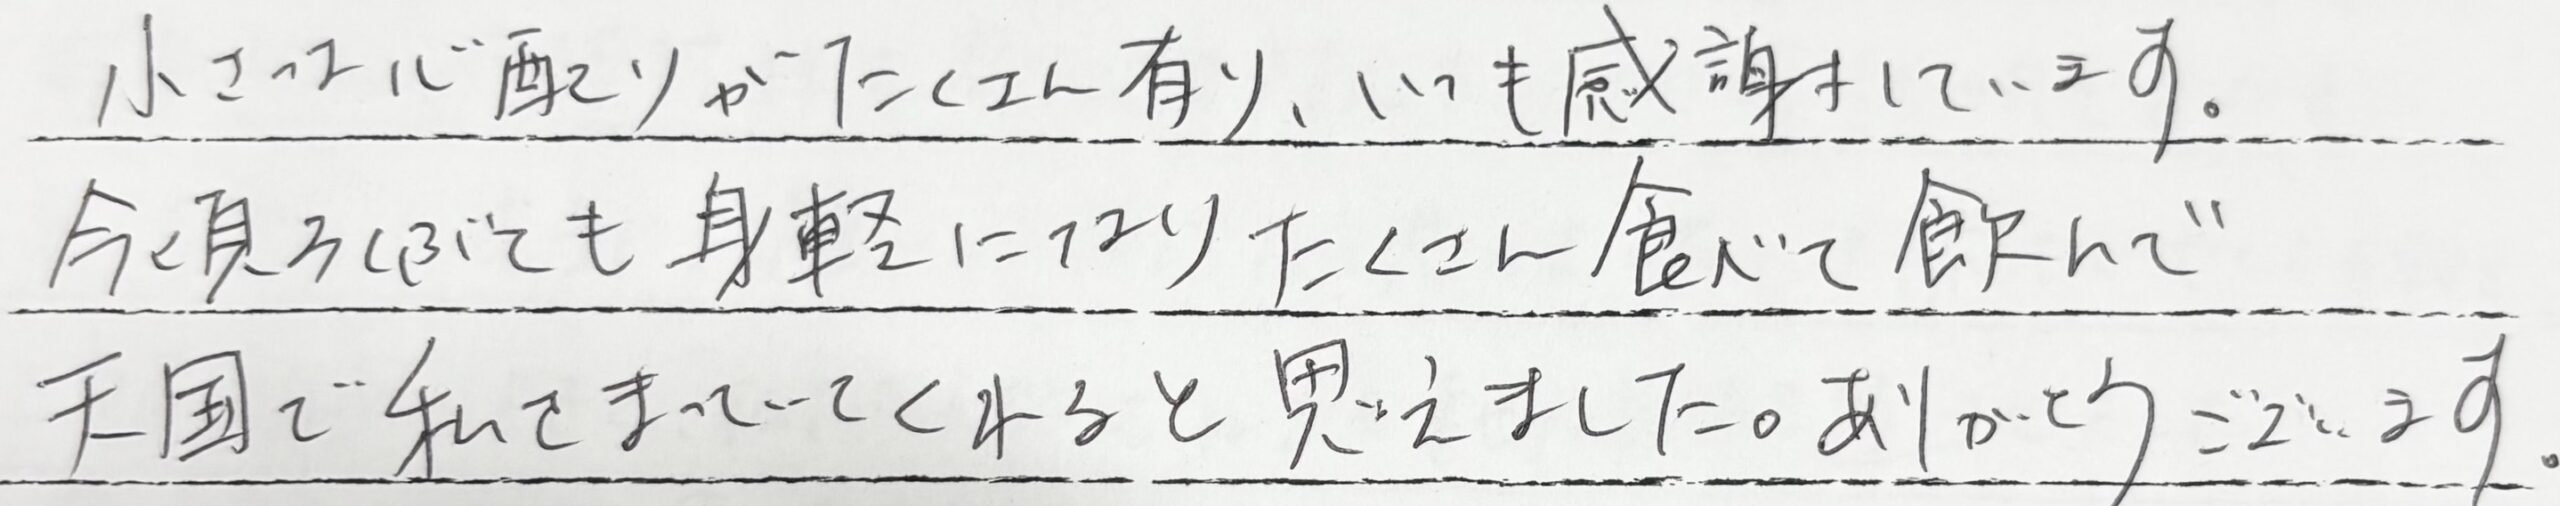 小さな心配りがたくさん有り、いつも感謝しています。
今頃 身軽になりたくさん食べて飲んで
天国で私をまっていてくれると思えました。ありがとうございます。